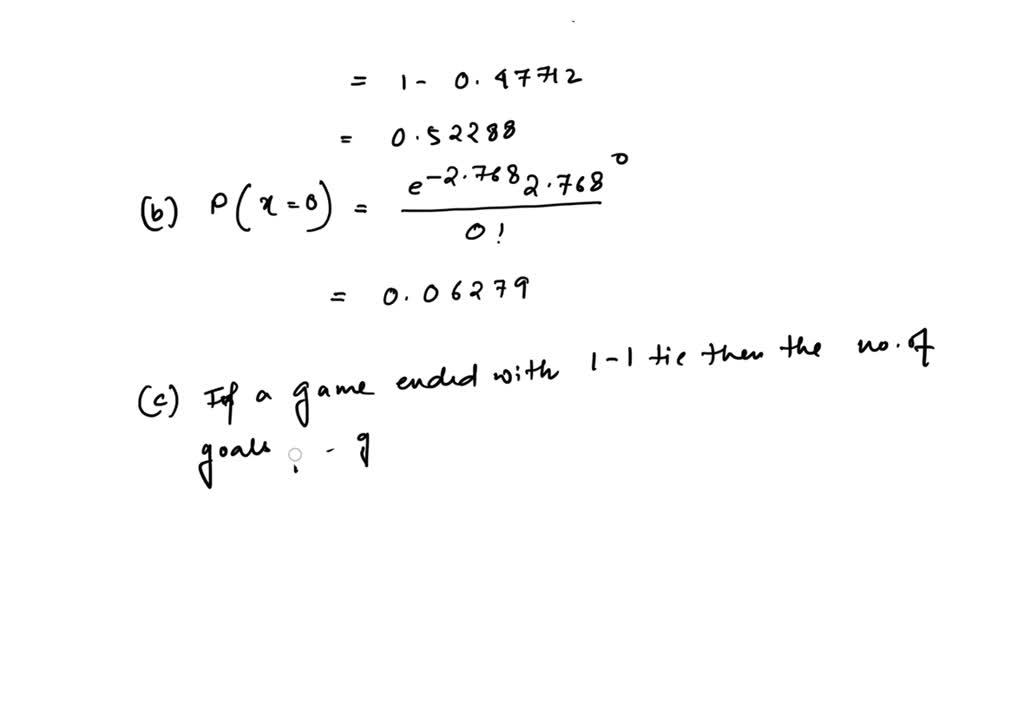 = 1 - 0.47712
= 0.52288
(b) P(x=0) = e^-2.768 2.768^0 / 0!
= 0.06279
(c) If a game ended with 1-1 tie then the no. of
goals